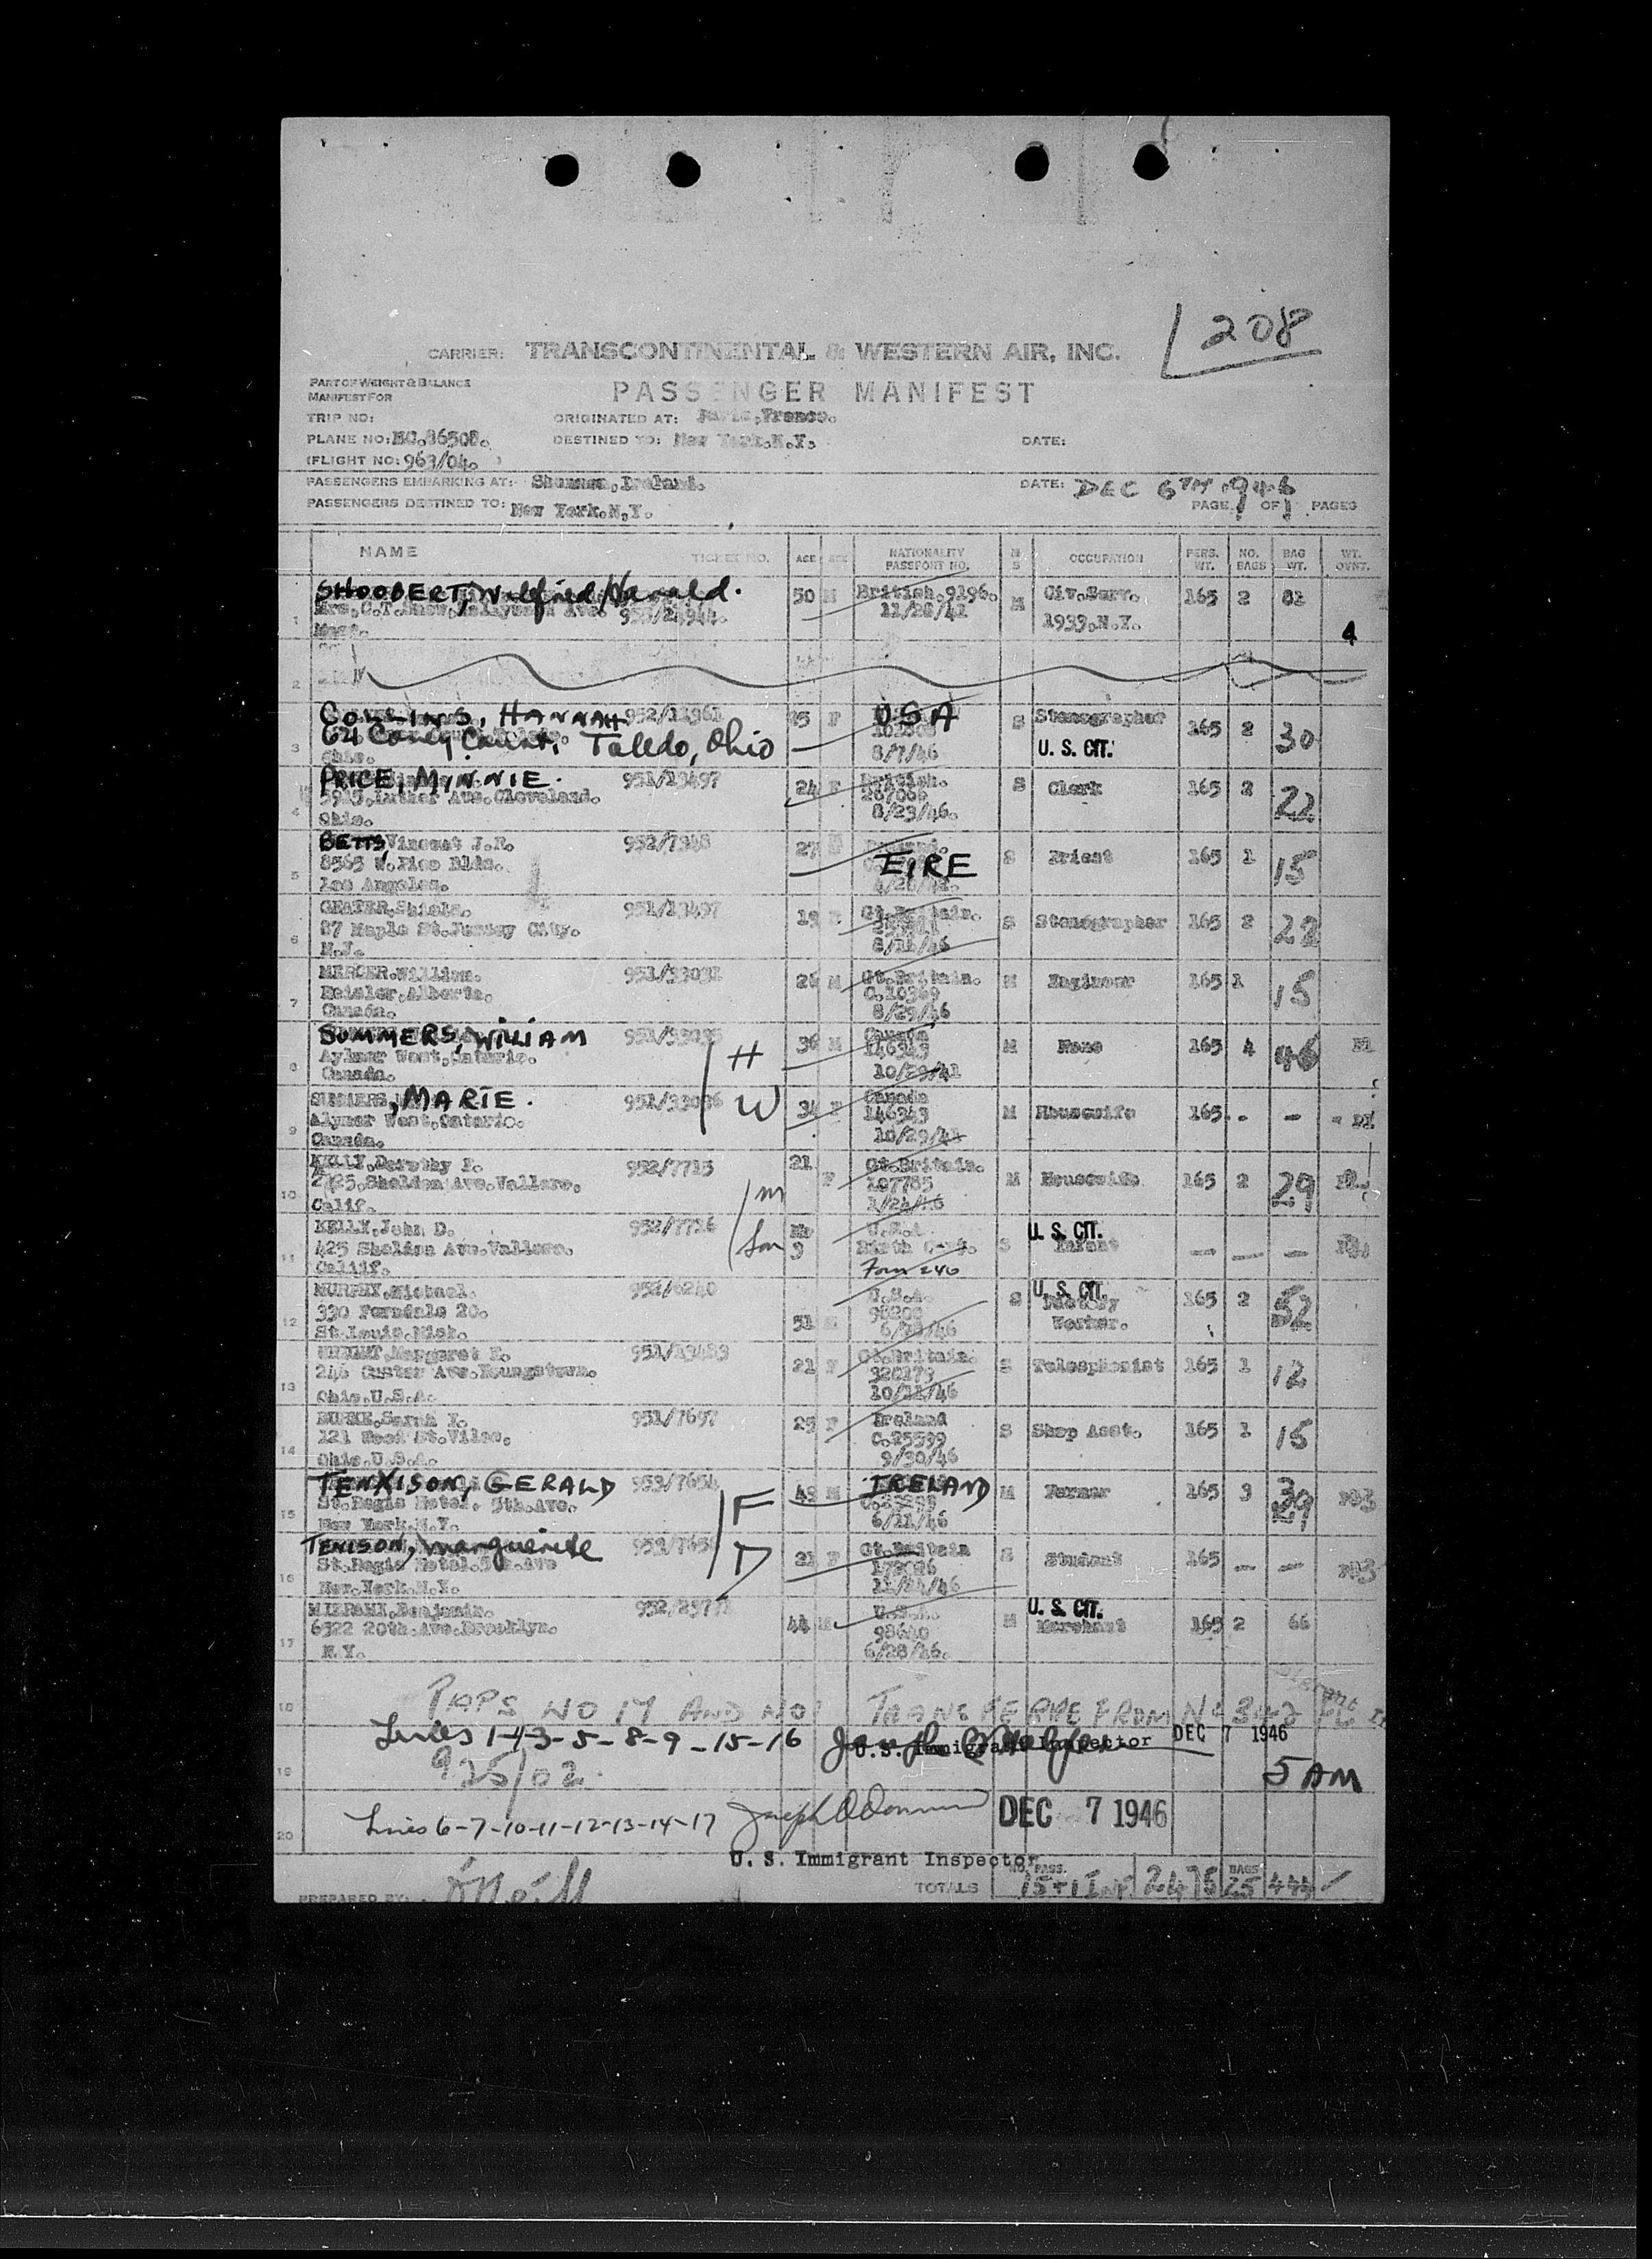 208
CARRIER: TRANSCONTINENTAL & WESTERN AIR, INC.
PART OF WEIGHT & BALANCE
MANIFEST FOR
PASSENGER MANIFEST
TRIP NO: ORIGINATED AT: Paris, France.
PLANE NO: NC.86508. DESTINED TO: New York.N.Y. DATE:
(FLIGHT NO: 963/04. )
PASSENGERS EMBARKING AT: Shannon, Ireland. DATE: DEC 6TH 1946
PASSENGERS DESTINED TO: New York.N,Y. PAGE 1 OF 1 PAGES
NAME TICKET NO. AGE SEX NATIONALITY PASSPORT NO. M S OCCUPATION PERS. WT. NO. BAGS BAG WT. WT. OVNT.
SHOOBERT, Wilfred Harald. 50 M British.9196. M Civ.Serv. 165 2 81
11/28/41
1 1933,N.Y. 4
2
COLLINS, HANNAH 952/11961 25 F USA S Stenographer 165 2 30
Toledo, Ohio
3 Ohio. 8/7/46 U. S. CIT.
PRICE, MINNIE. 951/13497 24 F British. S Clerk 165 2 22
Luther Ave.Cleveland.
4 Ohio. 8/23/46.
BETTS, Vincent J.R. 952/7348 27 EIRE S Priest 165 1 15
8565 W.Pico Blds.
5 Los Angeles.
GEATER, Shiela. 951/13497 19 F Gt.Britain. S Stenographer 165 2 22
87 Maple St.Jersey City.
6 N.J.
MERCER.William. 951/33032 26 M Gt.Britain. M Engineer 165 1 15
Alberta. C.10369
7 Canada. 8/29/46
SUMMERS, WILLIAM 951/33035 H 36 M Canada M None 165 4 46
Aylmer West,Ontario. 146343
8 Canada. 10/29/41
SUMMERS, MARIE. 951/33036 W 34 F Canada M Housewife 165. - -
Alymer West,Ontario. 146343
9 Canada. 10/29/41
KELLY, Dorothy 952/7715 m 21 F Gt.Britain. M Housewife 165 2 29
Sheldon Ave.Vallero. 107785
10 Calif.
KELLY, John D. 952/7716 Son 9 U.S.A. S U. S. CIT. Infant — — —
425 Sheldon Ave.Vallero. Birth Cert.
11 Calif. Form 240
MURPHY, Michael. 952/6240 51 U.S.A. S U. S. CIT. Factory Worker. 165 2 52
330 Ferndale
12 St Louis.Mich.
WRIGHT, Margaret 951/13483 21 F Gt.Britain. S Telesphonist 165 1 12
246 Custer Ave.Youngstown. 320179
13 Ohio.U.S.A. 10/11/46
Sarah 951/7697 25 F Ireland S Shop Asst. 165 1 15
121 C.25599
14 Ohio.U.S.A. 9/30/46
TENXISON, GERALD 953/7654 F 49 M IRELAND M Farmer 165 3
St.Regis Hotel. 5th.Ave.
15 New York.N.Y. 6/11/46
TENISON, Marguerite D 21 F Gt.Britain S Student 165 — —
St.Regis Hotel.5th.Ave
16 New.York.N.Y.
MIZRAHI, Benjamin. 44 M U.S.A. M U. S. CIT. Merchant 165 2 66
6522 20th.Ave.Brooklyn. 98640
17 N.Y. 6/28/46.
18 PAPS NO 17 AND NO 1 FROM
Lines 1-4-3-5-8-9-15-16 U.S. Immigrant Inspector DEC 7 1946
19 925/02. 5 AM
Lines 6-7-10-11-12-13-14-17 Joseph DEC 7 1946
20
U. S. Immigrant Inspector
PREPARED BY: O'Neill TOTALS NO. PASS. 15+1 INF BAGS 25